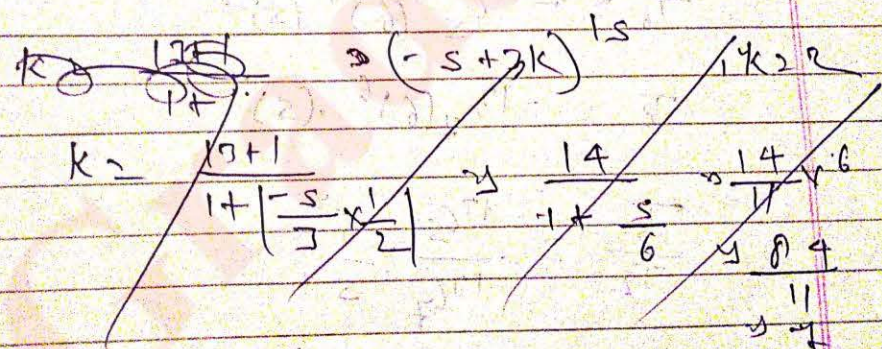 K 13+1 / 1+ ... ⇒ (-5+3k)^15 , k=2
K = 13+1 / 1+|-5/3 × 1/2| ⇒ 14 / 1+ 5/6 ⇒ 14/11 × 6
⇒ 84/11
⇒ 7